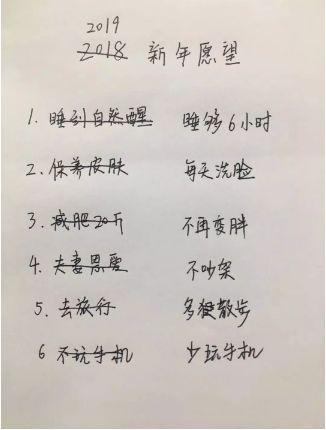 2019
2018 新年愿望
1. 睡到自然醒 睡够6小时
2. 保养皮肤 每天洗脸
3. 减肥20斤 不再变胖
4. 夫妻恩爱 不吵架
5. 去旅行 多散步
6 不玩手机 少玩手机